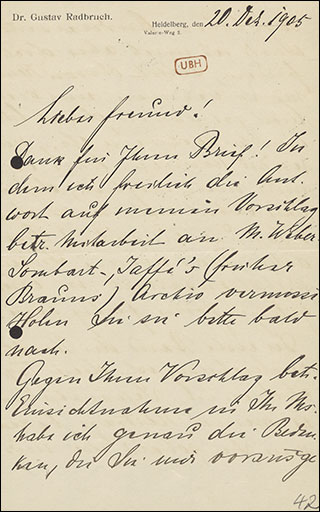 Dr. Gustav Radbruch.
Heidelberg, den 20. Dez. 1905
UBH
Lieber Freund!
Dank für Ihren Brief! In
dem ich freilich die Ant-
wort auf meinen Vorschlag
betr. Mitarbeit an M. Weber-
Sombart-, Jaffé's (früher
Brauns) Archiv vermisse.
Holen Sie sie bitte bald
nach.
Gegen Ihren Vorschlag betr.
Einsichtnahme in Ihr Ms.
habe ich genau die Beden-
ken, die Sie mir vorausge
42